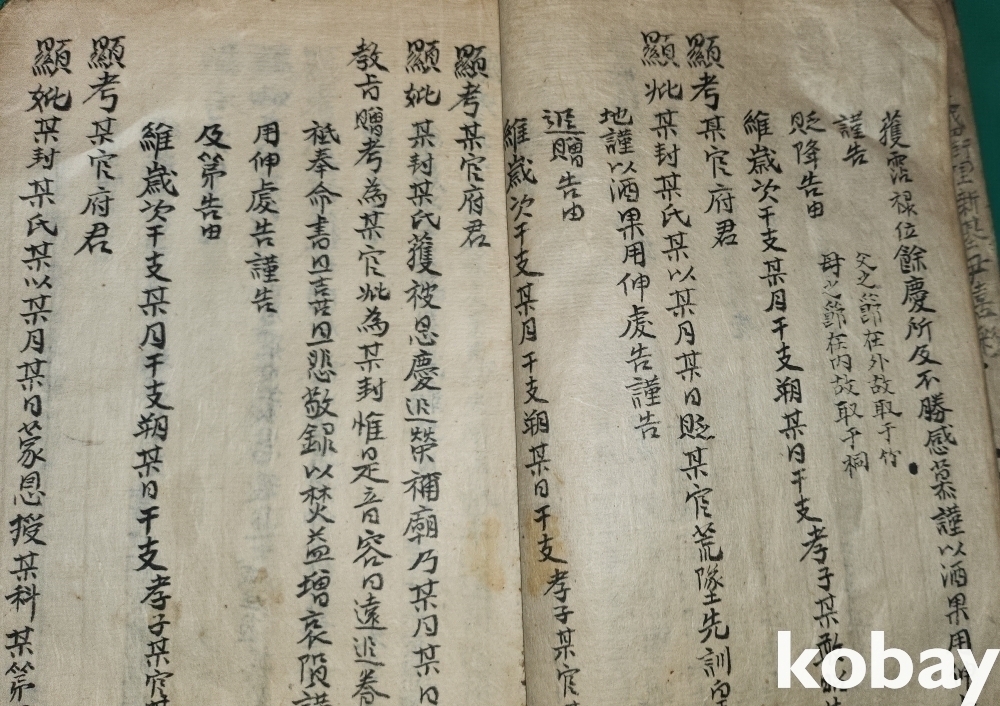 獲霑祿位餘慶所及不勝感慕謹以酒果用
謹告
父之節在外故取于竹
母之節在內故取于桐
貶降告由
維歲次干支某月干支朔某日干支孝子某
顯考某官府君
顯妣某封某氏某以某月某日貶某官荒墜先訓皇
地謹以酒果用伸虔告謹告
追贈告由
維歲次干支某月干支朔某日干支孝子某官
顯考某官府君
顯妣某封某氏獲被恩慶追榮禰廟乃某月某日
教旨贈考為某官妣為某封惟是音容日遠追養
祗奉命書且喜且悲敬錄以焚益增哀隕謹
用伸虔告謹告
及第告由
維歲次干支某月干支朔某日干支孝子某官某
顯考某官府君
顯妣某封某氏某以某月某日蒙恩授某科某第
kobay